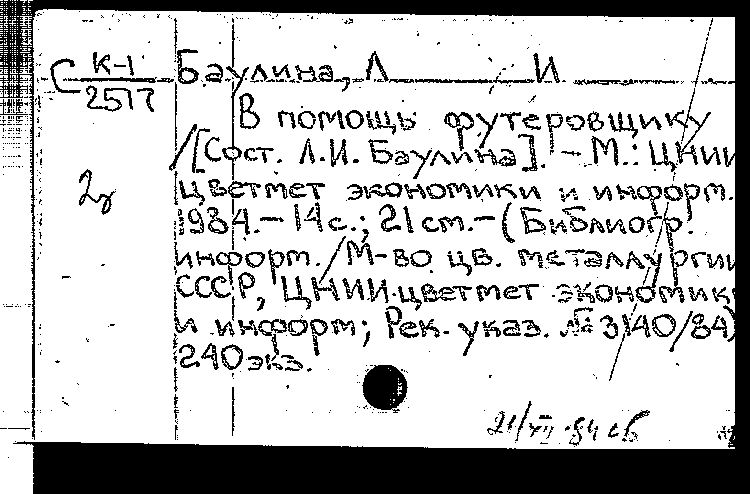 С К-1 Баулина, Л И
2517
В помощь футеровщику
/[Сост. Л.И. Баулина]. – М.: ЦНИИ
2
цветмет экономики и информ.
1984.– 14 с.; 21 см.– (Библиогр.
информ. / М-во цв. металлургии
СССР, ЦНИИцветмет экономики
и информ; Рек. указ. № 3140/84)
240 экз.
21/VII-84